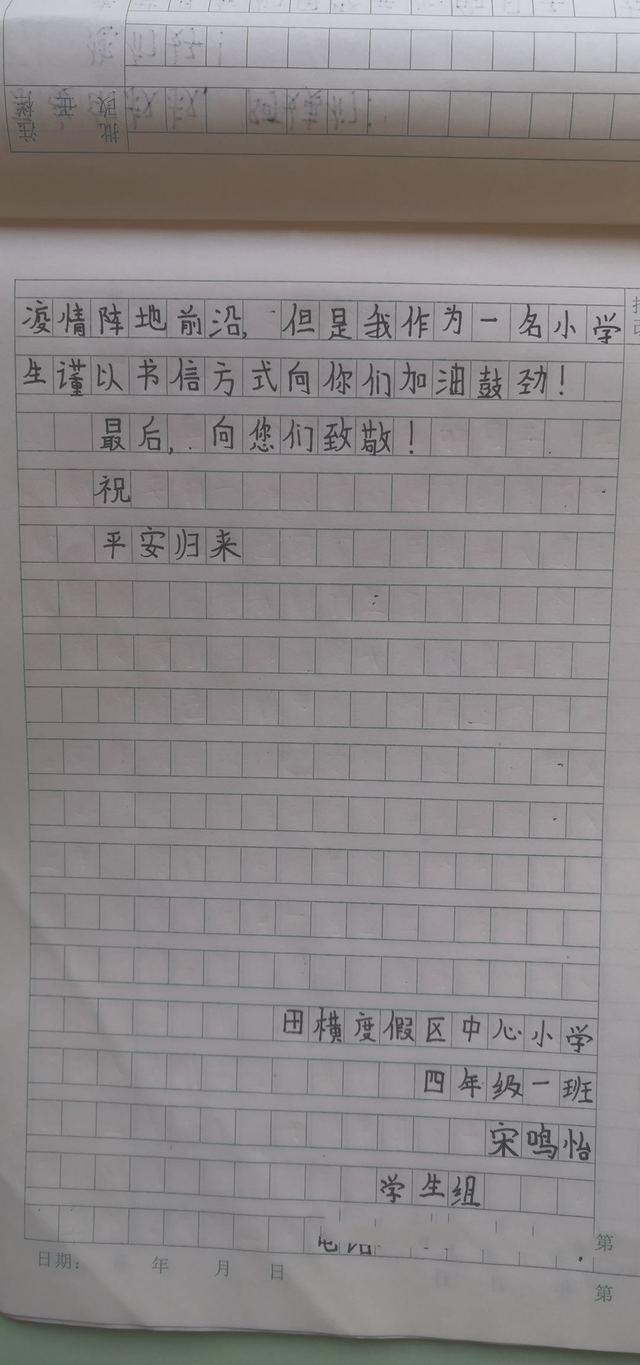 疫情阵地前沿,但是我作为一名小学
生谨以书信方式向你们加油鼓劲!
最后,向您们致敬!
祝
平安归来
田横度假区中心小学
四年级一班
宋鸣怡
学生组
日期: 年 月 日
第
第